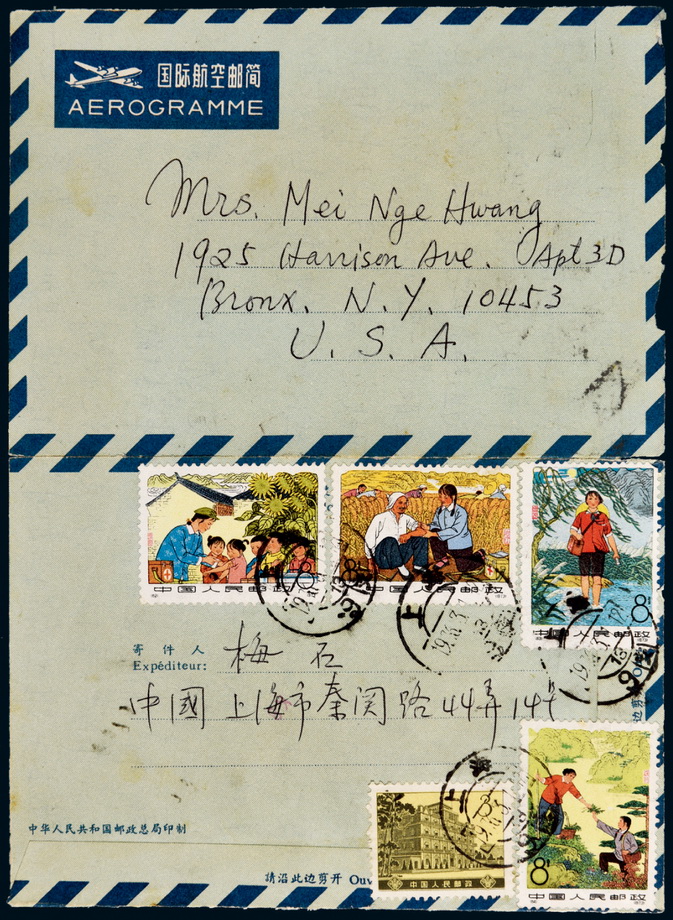 国际航空邮简
AEROGRAMME
Mrs. Mei Nge Hwang
1925 Harrison Ave. Apt 3D
Bronx, N.Y. 10453
U. S. A.
8
中国人民邮政
中国人民邮政
8
中国人民邮政
寄件人
Expéditeur:
梅石
中國上海市秦关路44弄14号
8
中国人民邮政
8
中国人民邮政
中华人民共和国邮政总局印制
請沿此边剪开 Ouv